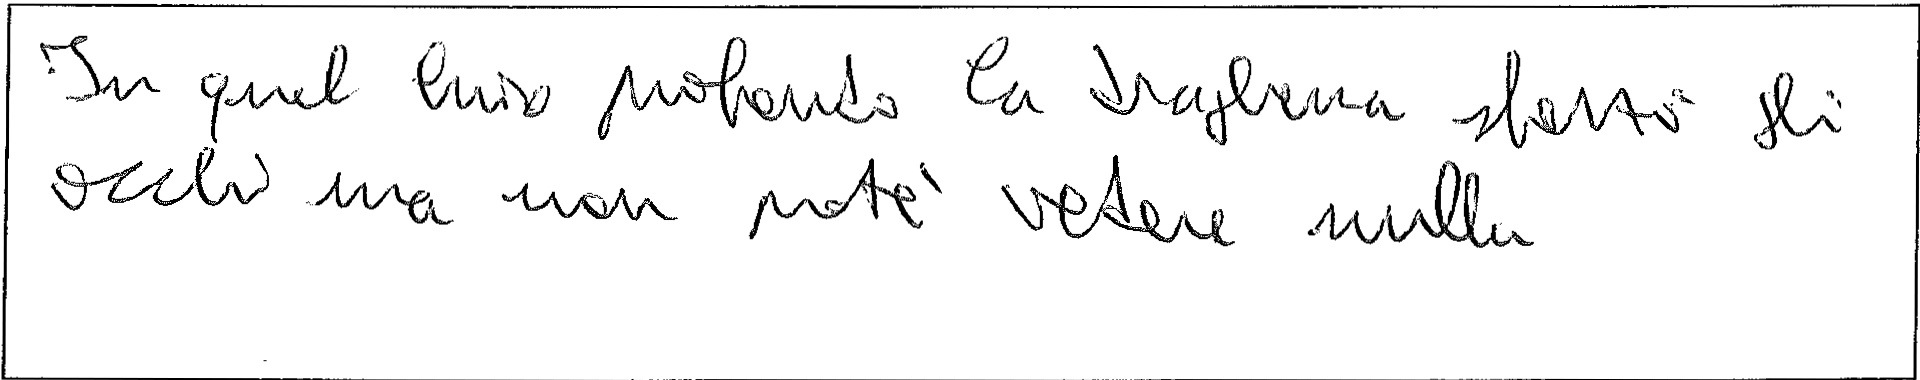 In quel buio profondo la sbarrò gli
occhi ma non poté vedere nulla